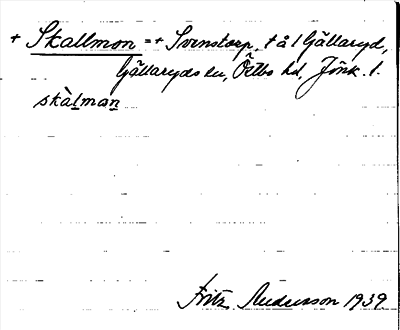 + Skallmon = + Svenstorp, t å l Gällaryd,
Gällaryds sn, Östbo hd, Jönk. l.
skàlman
Fritz Andersson 1939